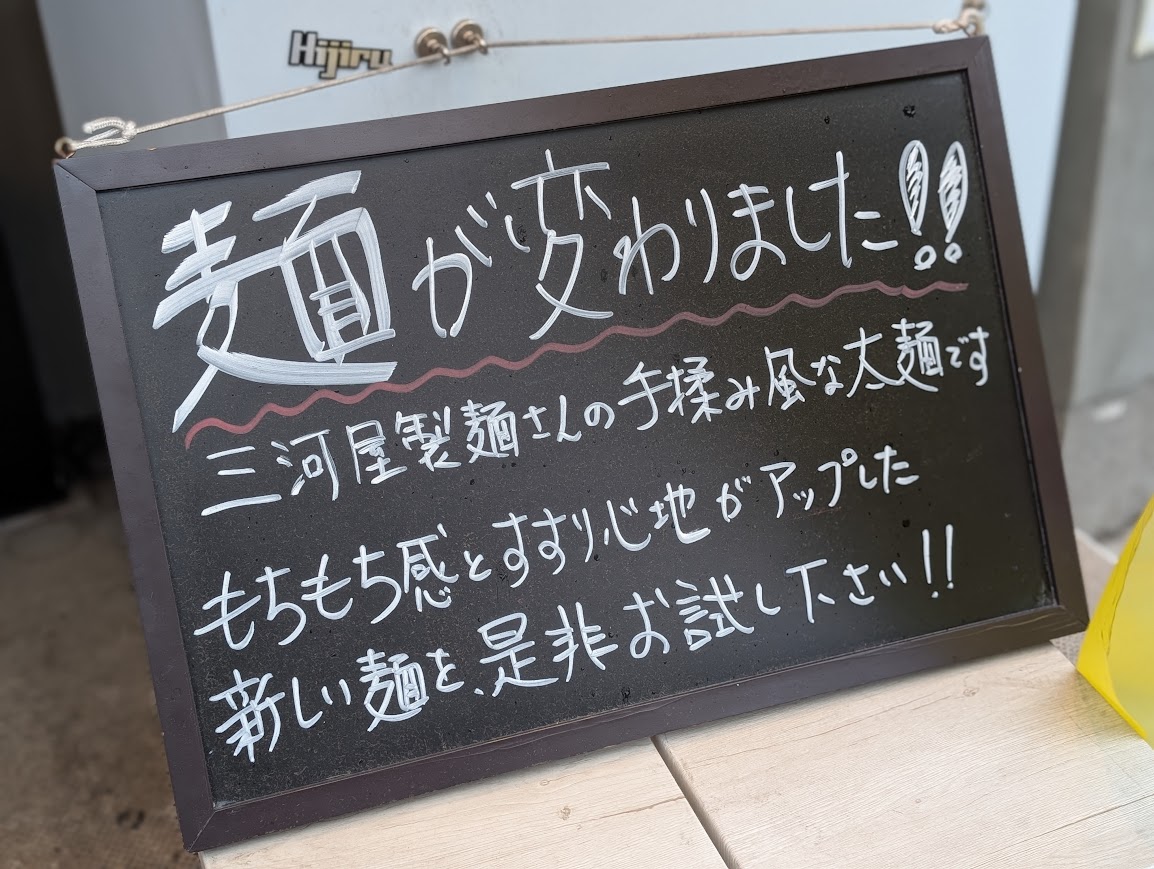 Hijiru
麺が変わりました!!
三河屋製麺さんの手揉み風な太麺です
もちもち感とすすり心地がアップした
新しい麺を、是非お試し下さい!!